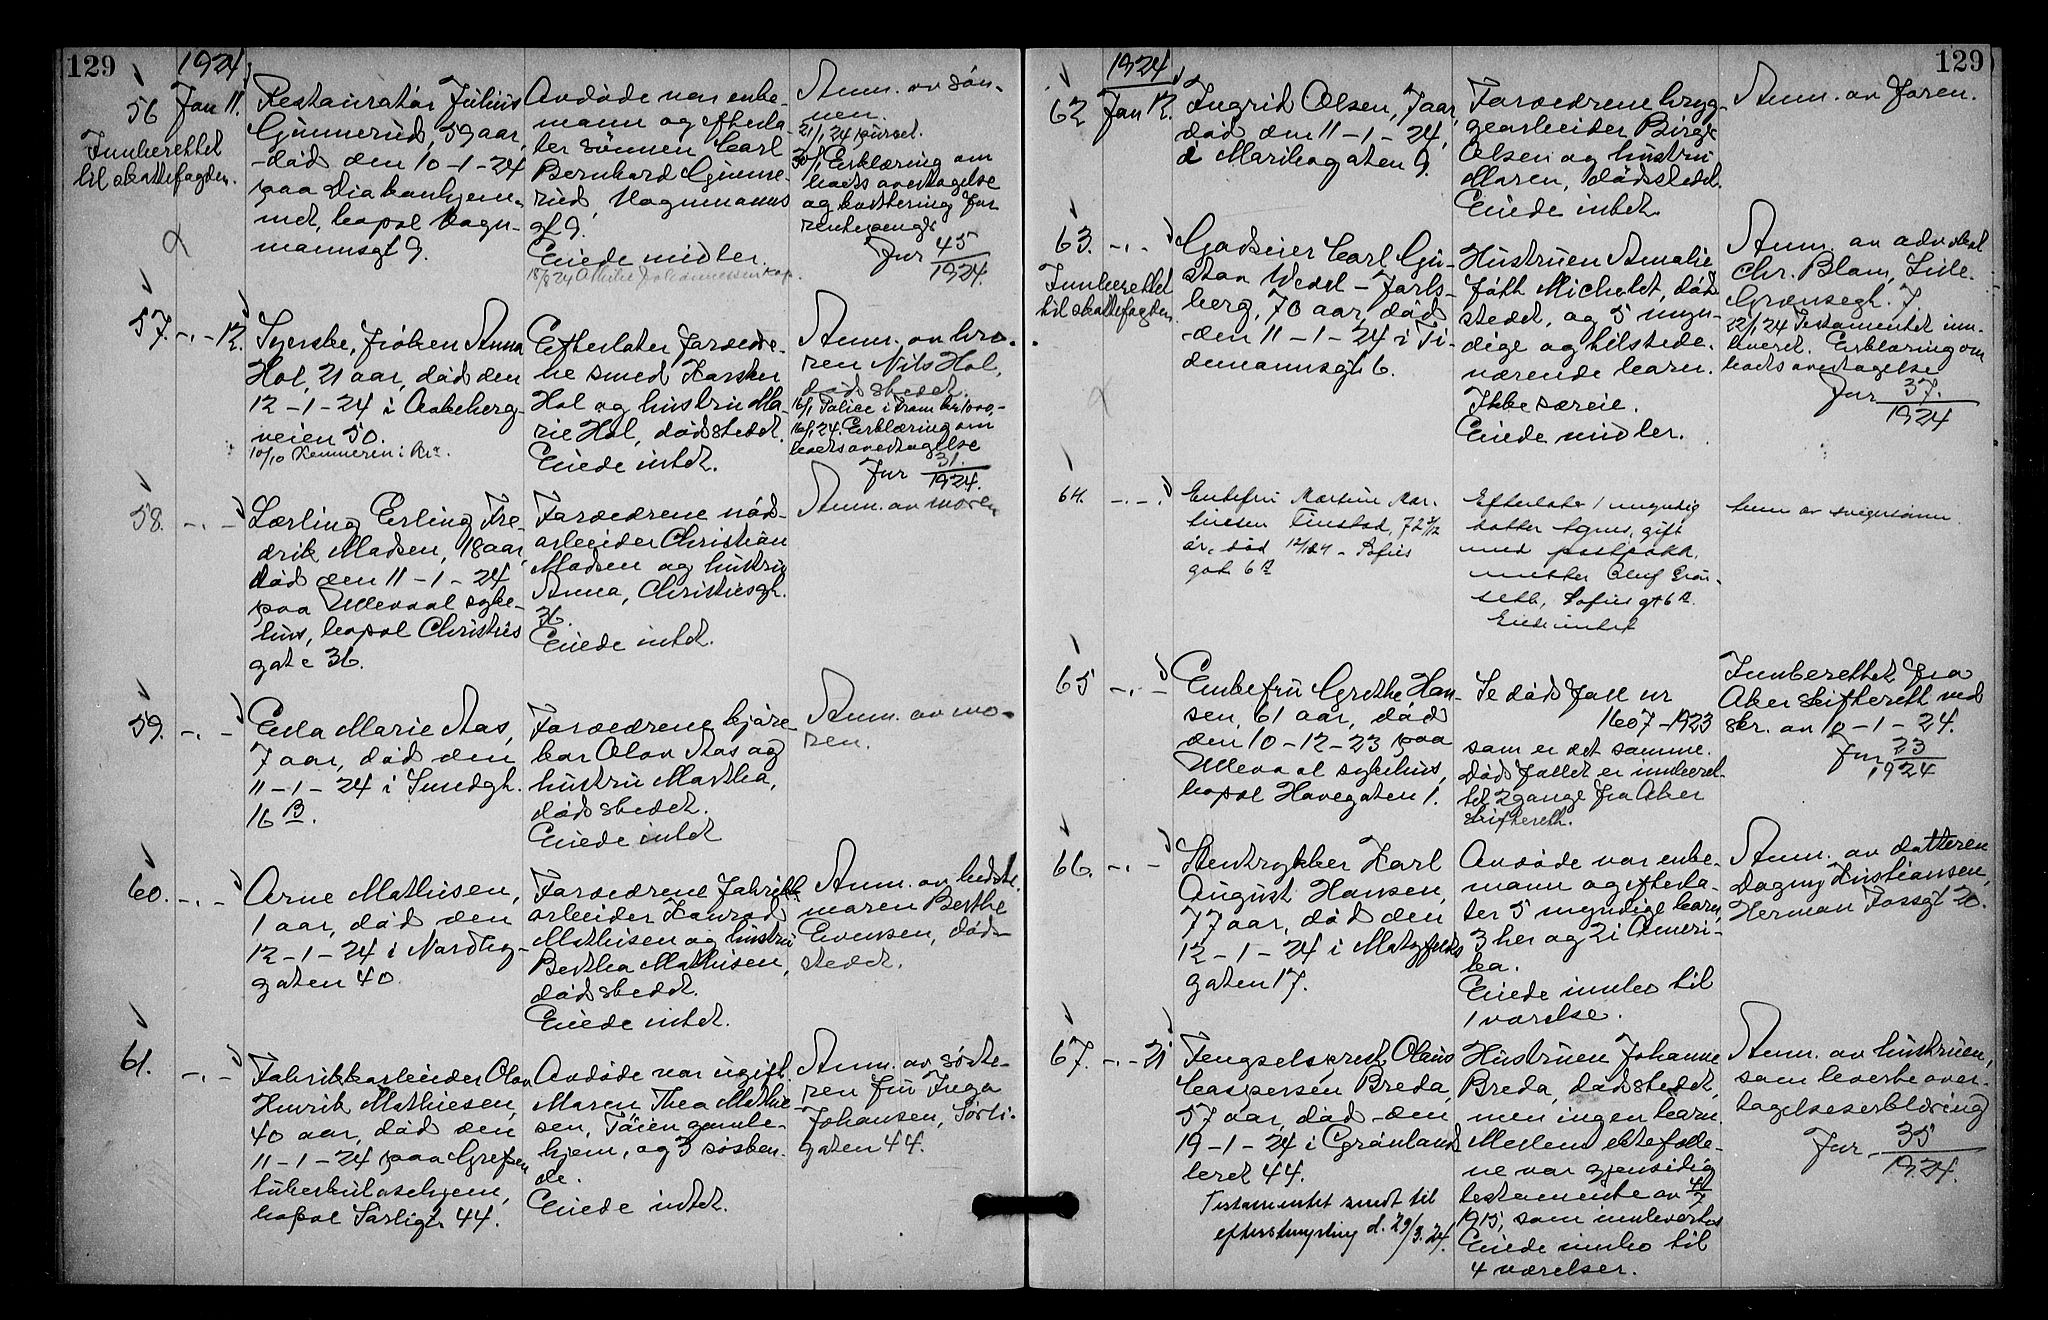 129
1924
56 Jan 11.
Innberettet
til skattefogden.
Restauratør Julius
Gunnerud, 59 aar,
død den 10-1-24
paa Diakonhjem-
met, bopæl Wagn-
mannsgt 9.
Avdøde var enke-
mann og efterla-
ter sønnen Carl
Bernhard Gunne-
rud, Wagnmanns
gt 9.
Eiede midler.
Anm. av søn-
nen.
21/1 24 purret.
30/1 Erklæring om
boets overtagelse
og kvittering for
rentepenger
Jnr 45
1924.
57. -"- 12.
Syerske, frøken Anna
Hol, 21 aar, død den
12-1-24 i Aakeberg-
veien 50.
10/10 Kemneren i Kr.a.
Efterlater foræld-
re smed Karsten
Hol og hustru Ma-
rie Hol, dødstedet.
Eiede intet.
Anm. av bro-
ren Nils Hol,
dødstedet.
16/1 Police i Fram kr 1000,-
16/1 24. Erklæring om
boets overtagelse
Jnr 31.
1924.
58. -"-
Lærling Erling Fre-
drik Madsen, 18 aar,
død den 11-1-24,
paa Ullevaal syke-
hus, bopæl Christies
gate 36.
Forældrene nød-
arbeider Christian
Madsen og hustru
Anna, Christiesgt.
36.
Eiede intet.
Anm. av moren
59. -"-
Edla Marie Aas,
7 aar, død den
11-1-24 i Smedgt.
16 B.
Forældrene kjøre-
kar Olav Aas og
hustru Martha,
dødstedet.
Eiede intet
Anm. av mo-
ren.
60. -"-
Arne Mathisen,
1 aar, død den
12-1-24 i Nordby-
gaten 40.
Forældrene fabrikk-
arbeider Konrad
Mathisen og hustru
Bertha Mathisen,
dødstedet.
Eiede intet.
Anm. av beste-
moren Berthe
Evensen, død-
stedet.
61. -"-
Fabrikkarbeider Olav
Henrik Mathiesen,
40 aar, død den
11-1-24 paa Grefsen
tuberkulosehjem,
bopæl Sørligt. 44.
Avdøde var ugift.
Moren Thea Mathie-
sen, Tøien gamle-
hjem, og 3 søsken-
de.
Eiede intet.
Anm. av søste-
ren fru Inga
Johansen, Sørli-
gaten 44.
129
1924
62 Jan 12.
Ingrid Olsen, 7 aar,
død den 11-1-24,
i Maribogaten 9.
Forældrene bryg-
gearbeider Birger
Olsen og hustru
Maren, dødstedet.
Eiede intet.
Anm. av faren.
63. -"-
Innberettet
til skattefogden.
Godseier Carl Gu-
stav Wedel-Jarls-
berg, 70 aar, død
den 11-1-24 i Ti-
demannsgt 6.
Hustruen Amalie
født Michelet, død-
stedet, og 5 myn-
dige og tilstede-
værende barn.
Ikke særeie.
Eiede midler.
Anm. av advokat
Chr. Blom, Lille
Grensegt. 7
22/1 24 Testamentet inn-
levert. Erklæring om
boets overtagelse
Jnr 37.
1924
64. -"-
Enkefru Martine Mar-
tinsen Finstad, 72 3/12
år, død 12/1 24 - Sofies
gat. 6 B
Efterlater 1 myndig
datter Agnes, gift
med postpakk-
mester Oluf
Sofies gt 6 B.
Eiede intet
Anm av svigersønn.
65 -"-
Enkefru Grethe Han-
sen, 61 aar, død
den 10-12-23 paa
Ullevaal sykehus,
bopæl Havegaten 1.
Se dødsfall nr
1607-1923
som er det samme.
Dødsfallet er innberet-
tet 2 gange fra Aker
skifterett.
Innberettet fra
Aker skifterett ved
skr. av 10-1-24.
Jnr 23
1924
66. -"-
Stentrykker Karl
August Hansen,
77 aar, død den
12-1-24 i Motzfeldts
gaten 17.
Avdøde var enke-
mann og efterla-
ter 5 myndige barn,
3 her og 2 i Ameri-
ka.
Eiede innbo til
1 værelse.
Anm. av datteren
Dagny Kristiansen,
Herman Fossgt 20.
67. -"- 21
Fengselsprest Olaus
Caspersen Breda,
57 aar, død den
19-1-24 i Grønland
leret 44.
Testamentet sendt til
efterstempling d. 29/3. 24.
Hustruen Johanne
Breda, dødstedet,
men ingen barn.
Mellem ektefolde-
ne var gjensidig
testamente av 4/7
1915, som innlevertes
Eiede innbo til
4 værelser.
Anm. av hustruen,
som leverte over-
tagelseserklæring
Jnr 35
1924.